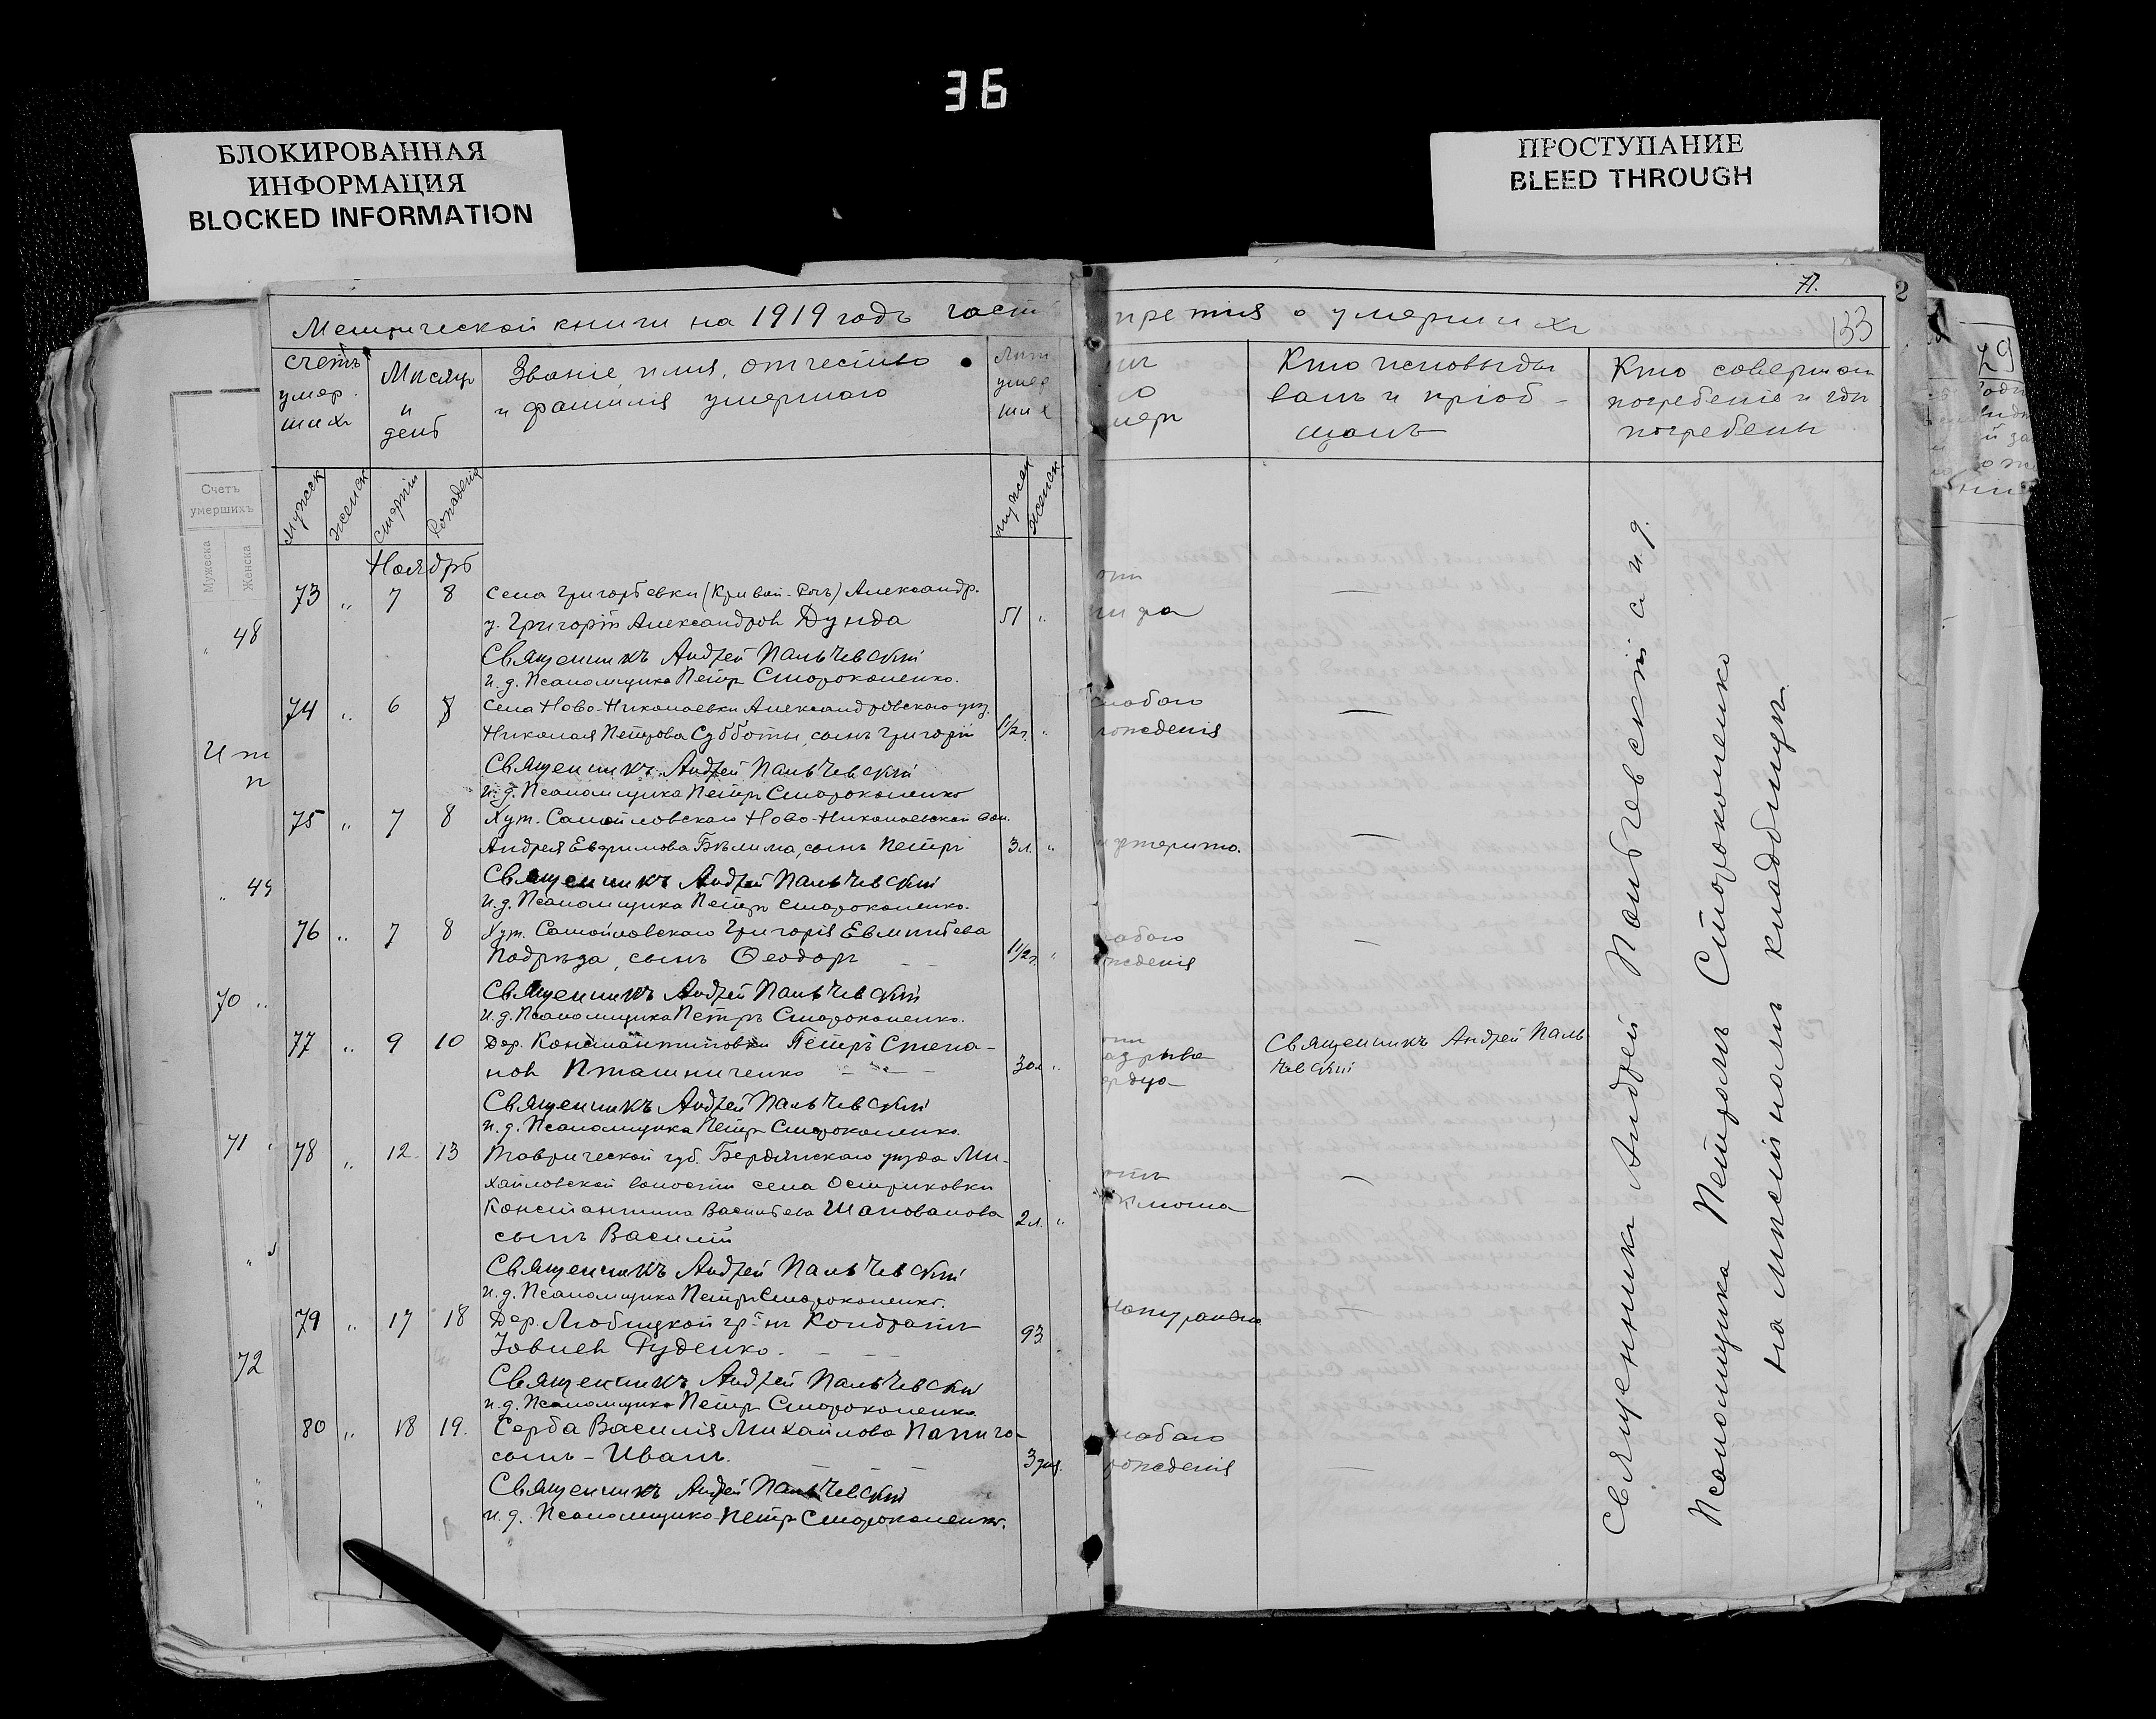 36
БЛОКИРОВАННАЯ
ИНФОРМАЦИЯ
BLOCKED INFORMATION
ПРОСТУПАНИЕ
BLEED THROUGH
71.
133
2
29
Метрической книги на 1919 годъ часть третія о умершихъ
Счетъ умершихъ
Мѣсяцъ и день
Званіе, имя, отчество и фамилія умершаго
Лѣта умерших
Кто исповѣдывалъ и пріобщалъ
Кто совершалъ погребеніе и гдѣ погребены
Мужеск
Женск
Смерти
Погребенія
Мужеск
Женск
Счетъ
умершихъ
Мужеска
Женска
Ноябрь
73 " 7 8 Села Григорьевки (Кривой-Рогъ) Александр.
у. Григорій Александров Дунда 51 "
тифа
—
Священникъ Андрей Пальчевскій
и. д. Псаломщика Петр Сторококенко.
74 " 6 8 Села Ново-Николаевки Александровскаго уѣз.
Николая Петрова Субботы, сынъ Григорій 1 1/2 г. "
слабаго
рожденія
—
Священникъ Андрей Пальчевскій
и. д. Псаломщика Петр Сторококенко
75 " 7 8 Хут. Самойловскаго Ново-Николаевской вол.
Андрея Евфимова Бѣлима, сынъ Петръ 3 л. "
—
Священникъ Андрей Пальчевскій
и. д. Псаломщика Петр Сторококенко.
76 " 7 8 Хут. Самойловскаго Григорія
сынъ Ѳеодоръ 1 1/2 г. "
слабаго
рожденія
—
Священникъ Андрей Пальчевскій
и. д. Псаломщика Петръ Сторококенко.
77 " 9 10 Дер. Константиновки Петръ Степа-
нов Пташниченко 30 л. "
Священникъ Андрей Паль-
чевскій
Священникъ Андрей Пальчевскій
и. д. Псаломщика Петр Сторококенко.
78 " 12 13 Таврической губ. Бердянскаго уѣзда Ми-
хайловской волости села Остриковки
Константина Васильева Шаповалова 2 л. "
сынъ Василій
отъ
коклюша
—
Священникъ Андрей Пальчевскій
и. д. Псаломщика Петр Сторококенко.
79 " 17 18 Дер. Любицкой гр-нъ Кондратъ
Іовлев Руденко. 93
Священникъ Андрей Пальчевскій
и. д. Псаломщика Петр Сторококенко
80 " 18 19. Серба Василія Михайлова
сынъ - Иванъ. 3 дня.
слабаго
рожденія
—
Священникъ Андрей Пальчевскій
и. д. Псаломщика Петр Сторококенко.
Священникъ Андрей Пальчевскій съ и. д.
Псаломщика Петромъ Сторококенко
на мѣстномъ кладбищѣ.
" 48
" 49
70 "
71 "
72